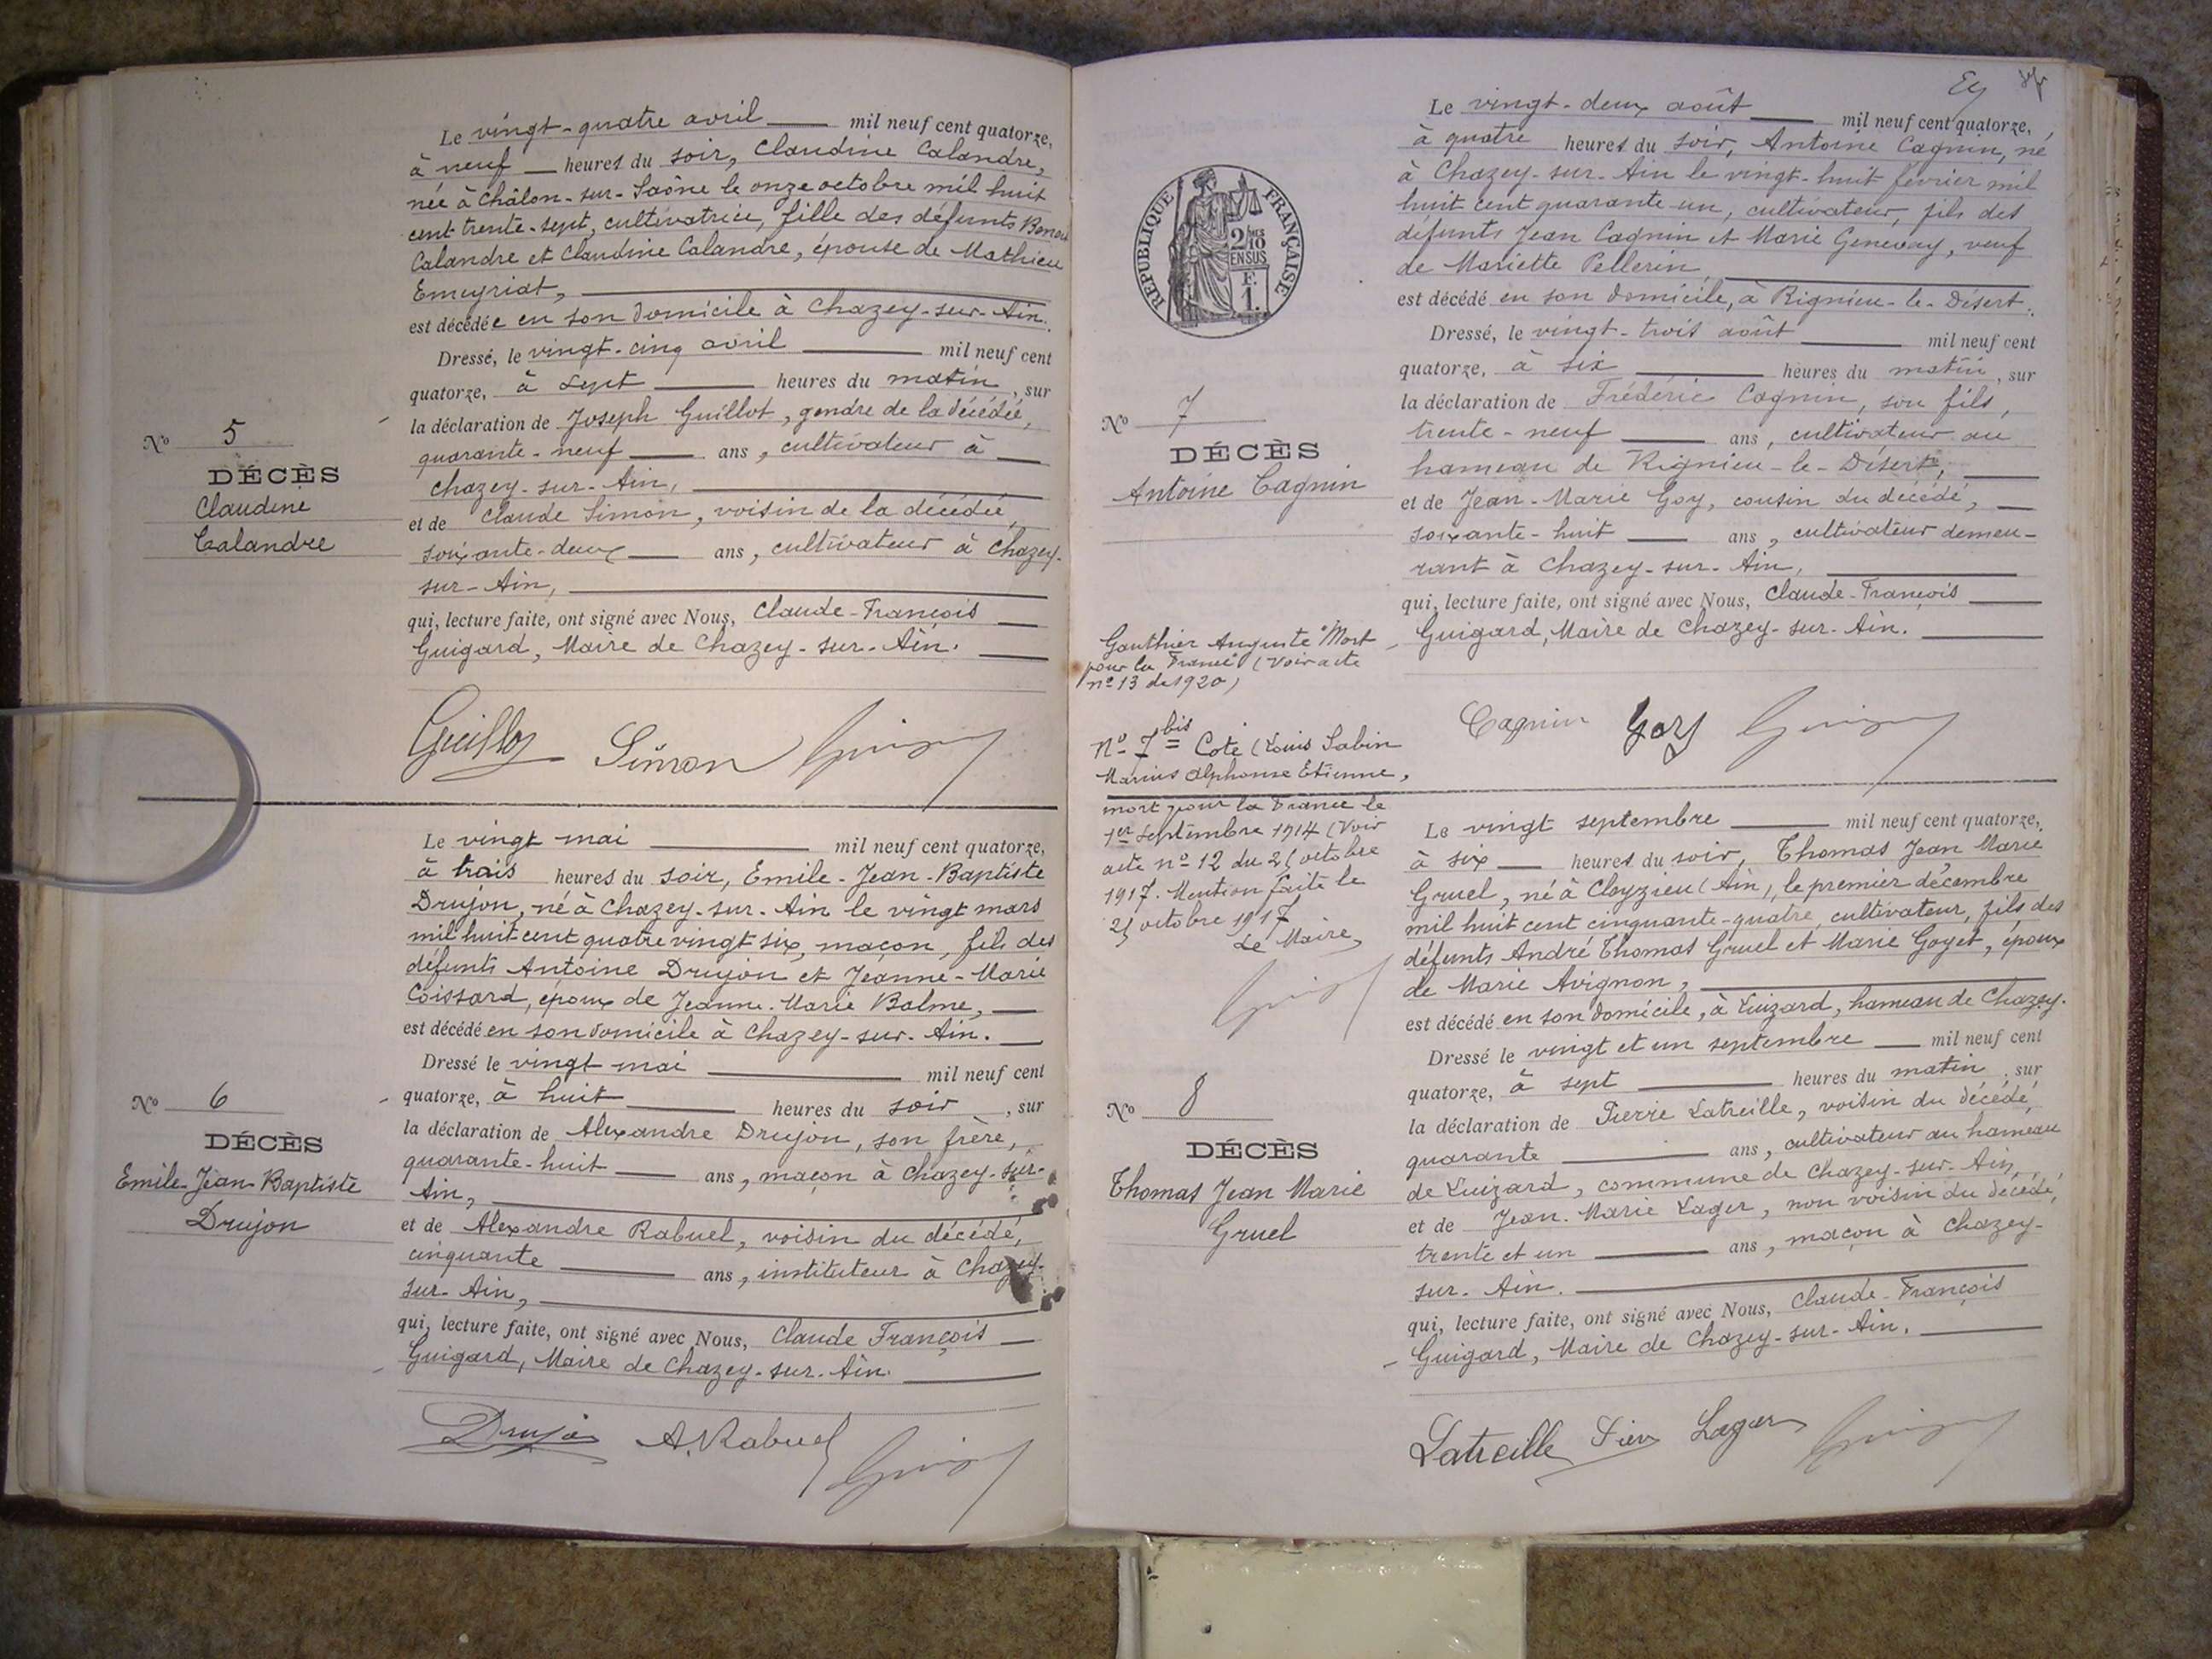 Le vingt-quatre avril mil neuf cent quatorze,
à neuf heures du soir, Claudine Calandre,
née à Châlon-sur-Saône le onze octobre mil huit
cent trente-sept, cultivatrice, fille des défunts
Calandre et Claudine Calandre, épouse de Mathieu
Emeyriat,
est décédée en son domicile à Chazey-sur-Ain.
Dressé, le vingt-cinq avril mil neuf cent
quatorze, à sept heures du matin, sur
la déclaration de Joseph Guillot, gendre de la décédée,
quarante-neuf ans, cultivateur à
Chazey-sur-Ain,
et de Claude Simon, voisin de la décédée,
soixante-deux ans, cultivateur à Chazey-
sur-Ain,
qui, lecture faite, ont signé avec Nous, Claude-François
Guigard, Maire de Chazey-sur-Ain.
Nº 5
DÉCÈS
Claudine
Calandre
Guillot Simon
Le vingt mai mil neuf cent quatorze,
à trois heures du soir, Emile-Jean-Baptiste
Drujon, né à Chazey-sur-Ain le vingt mars
mil huit cent quatre vingt six, maçon, fils des
défunts Antoine Drujon et Jeanne-Marie
Coissard, époux de Jeanne-Marie Balme,
est décédé en son domicile à Chazey-sur-Ain.
Dressé le vingt mai mil neuf cent
quatorze, à huit heures du soir, sur
la déclaration de Alexandre Drujon, son frère,
quarante-huit ans, maçon à Chazey-sur-
Ain,
et de Alexandre Rabuel, voisin du décédé,
cinquante ans, instituteur à Chazey-
sur-Ain,
qui, lecture faite, ont signé avec Nous, Claude François
Guigard, Maire de Chazey-sur-Ain.
Nº 6
DÉCÈS
Emile-Jean-Baptiste
Drujon
Drujon A. Rabuel
REPUBLIQUE FRANÇAISE
2/10
EN SUS
F.
1.
Le vingt-deux août mil neuf cent quatorze,
à quatre heures du soir, Antoine Cagnin, né
à Chazey-sur-Ain le vingt-huit février mil
huit cent quarante-un, cultivateur, fils des
défunts Jean Cagnin et Marie Genevay, veuf
de Mariette Pellerin,
est décédé en son domicile, à Rignieu-le-Désert.
Dressé, le vingt-trois août mil neuf cent
quatorze, à six heures du matin, sur
la déclaration de Frédéric Cagnin, son fils,
trente-neuf ans, cultivateur au
hameau de Rignieu-le-Désert,
et de Jean-Marie Goy, cousin du décédé,
soixante-huit ans, cultivateur demeu-
rant à Chazey-sur-Ain,
qui, lecture faite, ont signé avec Nous, Claude-François
Guigard, Maire de Chazey-sur-Ain.
Nº 7
DÉCÈS
Antoine Cagnin
Gauthier Auguste "Mort
pour la France" (Voir acte
nº 13 de 1920)
Cagnin Goy
Nº 7 bis Cote (Louis Sabin
Marius Alphonse Etienne,
mort pour la France le
1er Septembre 1914 (Voir
acte nº 12 du 21 octobre
1917. Mention faite le
21 octobre 1917
Le Maire
Le vingt septembre mil neuf cent quatorze,
à six heures du soir, Thomas Jean Marie
Gruel, né à Cleyzieu (Ain), le premier décembre
mil huit cent cinquante-quatre, cultivateur, fils des
défunts André Thomas Gruel et Marie Goyet, époux
de Marie Avignon,
est décédé en son domicile, à Luizard, hameau de Chazey.
Dressé le vingt et un septembre mil neuf cent
quatorze, à sept heures du matin, sur
la déclaration de Pierre Latreille, voisin du décédé,
quarante ans, cultivateur au hameau
de Luizard, commune de Chazey-sur-Ain,
et de Jean-Marie Lager, non voisin du décédé,
trente et un ans, maçon à Chazey-
sur-Ain.
qui, lecture faite, ont signé avec Nous, Claude-François
Guigard, Maire de Chazey-sur-Ain.
Nº 8
DÉCÈS
Thomas Jean Marie
Gruel
Latreille Lager